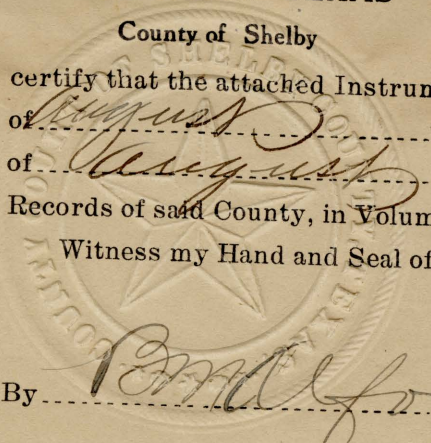 County of Shelby
certify that the attached Instrum
of August
of August
Records of said County, in Volum
Witness my Hand and Seal of
By